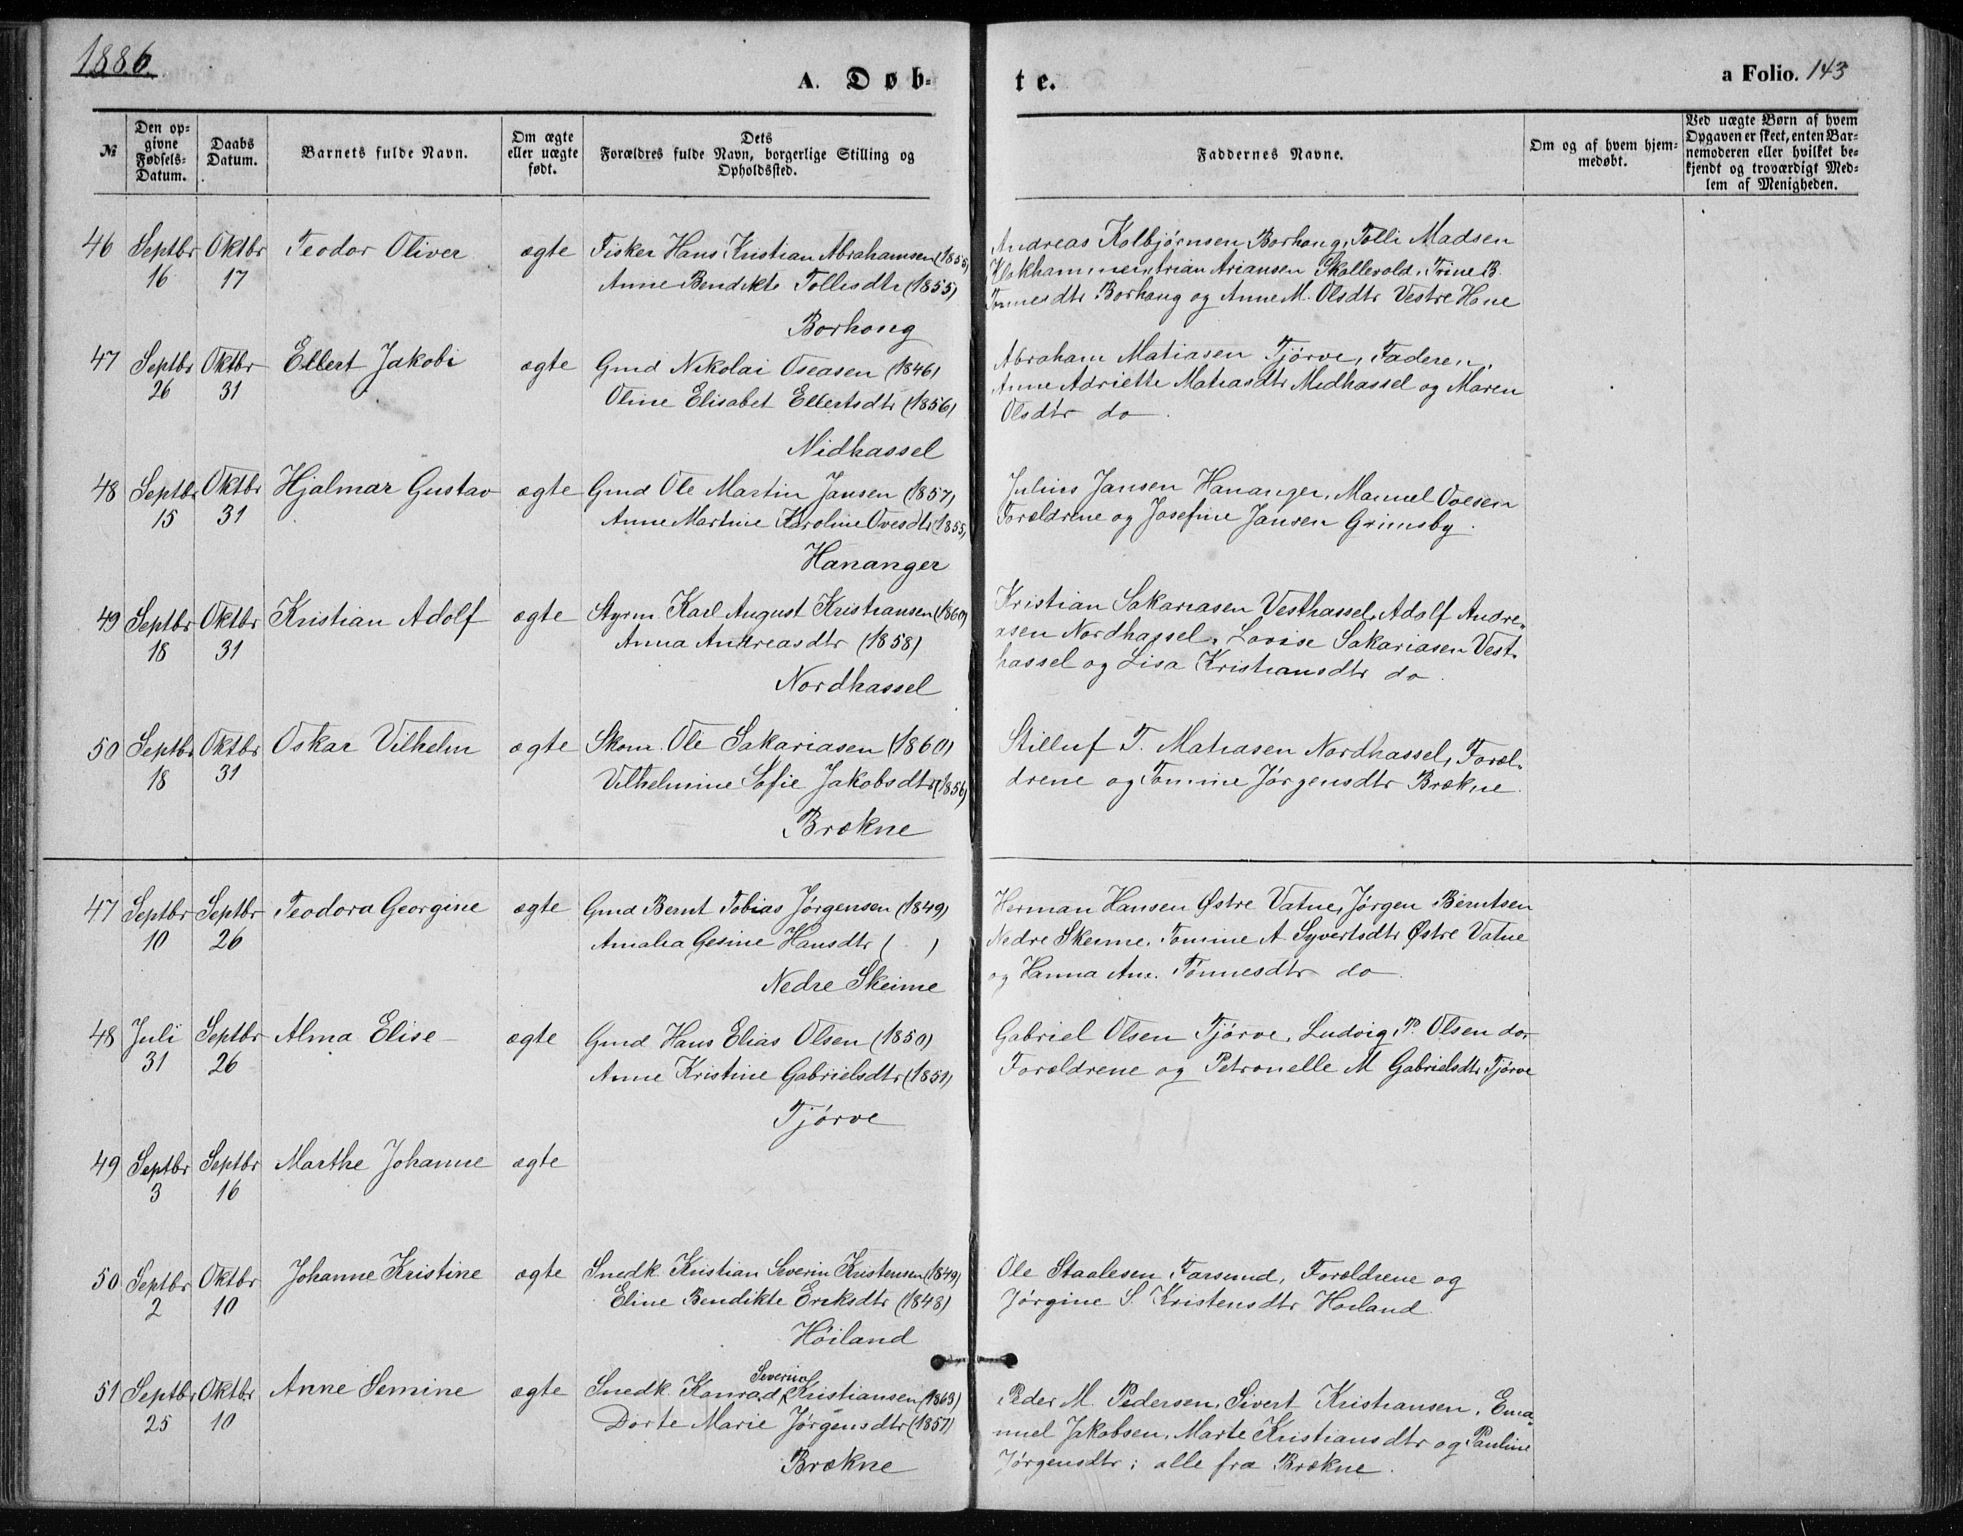 1886.
A. Døb-
te.
a Folio. 143
№
Den op-
givne
Fødsels-
Datum.
Daabs
Datum.
Barnets fulde Navn.
Om ægte
eller uægte
født.
Dets
Forældres fulde Navn, borgerlige Stilling og
Opholdssted.
Faddernes Navne.
Om og af hvem hjem-
medøbt.
Ved uægte Børn af hvem
Opgaven er skeet, enten Bar-
nemoderen eller hvilket be-
kjendt og troværdigt Med-
lem af Menigheden.
46 Septbr Oktbr Teodor Oliver ægte Fisker Hans Kristian Abrahamsen (1855)
16 17 Anne Bendikte Tollisdtr (1855)
Borhoug
Andreas Kolbjørnsen Borhoug, Tolli Madsen
Ariansen Skollevold, Trine B.
Tønnesdtr Borhoug og Anne M. Olsdtr Vestre Haue
47 Septbr Oktbr Ellert Jakobi ægte Gmd Nikolai Oseasen (1846)
26 31 Oline Elisabet Ellertsdtr (1856)
Midhassel
Abraham Matiasen Tjørve, Faderen,
Anne Adriette Matiasdtr Midhassel og Maren
Olsdtr do.
48 Septbr Oktbr Hjalmar Gustav ægte Gmd Ole Martin Jansen (1857)
15 31 Anne Martine Karoline Ovesdtr (1855)
Hananger
Julius Jansen Hananger, Manuel Ovesen
Forældrene og Josefine Jansen Grimsby.
49 Septbr Oktbr Kristian Adolf ægte Styrm. Karl August Kristiansen (1860)
18 31 Anna Andreasdtr (1858)
Nordhassel
Kristian Sakariasen Vesthassel, Adolf Andre-
asen Nordhassel, Lovise Sakariasen Vest-
hassel og Lisa Kristiansdtr do.
50 Septbr Oktbr Oskar Vilhelm ægte Skom. Ole Sakariasen (1860)
18 31 Vilhelmine Sofie Jakobsdtr (1856)
Brækne
Stilluf T. Matiasen Nordhassel, Foræl-
drene og Tomine Jørgensdtr Brækne.
47 Septbr Septbr Teodora Georgine ægte Gmd Bernt Tobias Jørgensen (1849)
10 26 Amalia Gesine Hansdtr ( )
Nedre Skeime
Herman Hansen Østre Vatne, Jørgen Berntsen
Nedre Skeime, Tomine A Syvertsdtr Østre Vatne
og Hanna Am. Tønnesdtr do.
48 Juli Septbr Alma Elise ægte Gmd Hans Elias Olsen (1850)
31 26 Anne Kristine Gabrielsdtr (1851)
Tjørve
Gabriel Olsen Tjørve, Ludvig P. Olsen do,
Forældrene og Petronelle M Gabrielsdtr Tjørve
49 Septbr Septbr Marthe Johanne ægte
3 16
50 Septbr Oktbr Johanne Kristine ægte Snedk. Kristian Severin Kristensen (1849)
2 10 Eline Bendikte Eriksdtr (1848)
Høiland
Ole Staalesen Farsund, Forældrene og
Jørgine S. Kristensdtr Høiland
51 Septbr Oktbr Anne Semine ægte Snedk. Konrad Severin Kristiansen (1863)
25 10 Dorte Marie Jørgensdtr (1857)
Brækne
Peder M. Pedersen, Sivert Kristiansen, Ema-
nuel Jakobsen, Marte Kristiansdtr og Pauline
Jørgensdtr; alle fra Brækne.